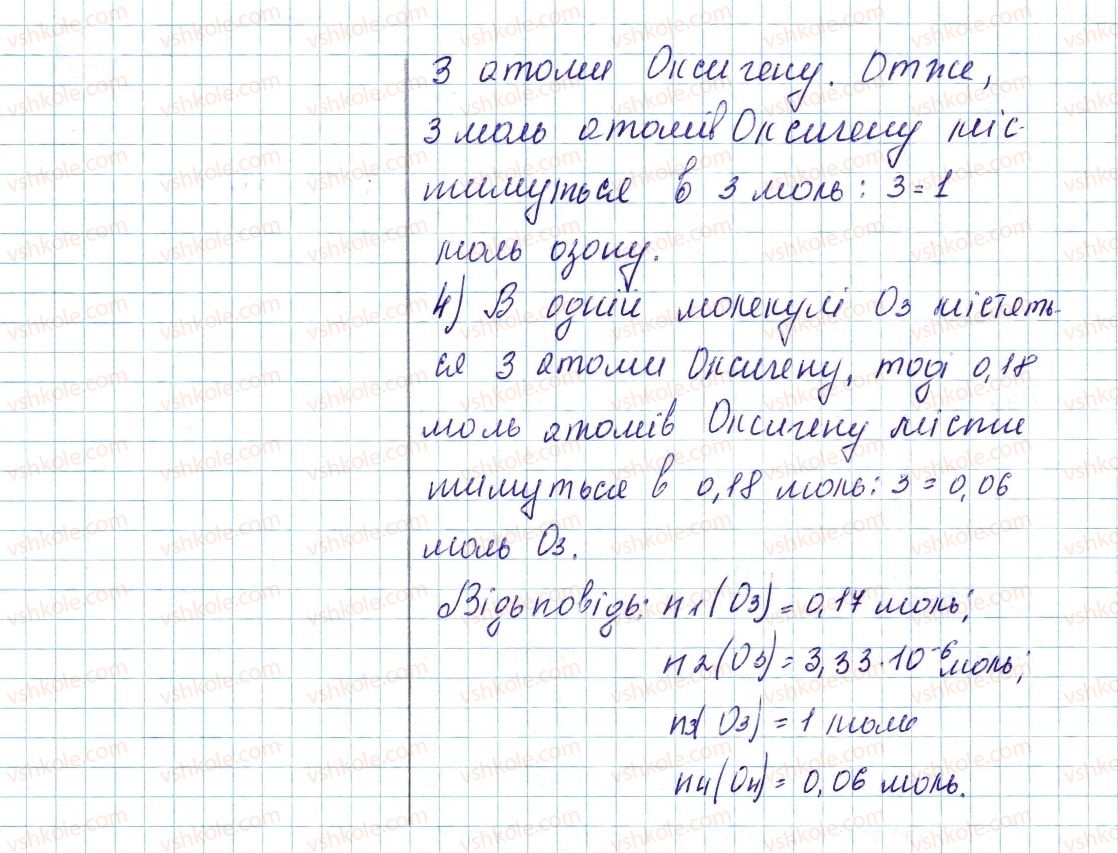 3 атоми Оксигену. Отже,
3 моль атомів Оксигену міс-
тимуться в 3 моль : 3 = 1
моль озону.
4) В одній молекулі O3 містять-
ся 3 атоми Оксигену, тоді 0,18
моль атомів Оксигену місти
тимуться в 0,18 моль : 3 = 0,06
моль O3.
Відьповідь: n1(O3) = 0,17 моль;
n2(O3) = 3,33·10⁻⁶ моль;
n3(O3) = 1 моль
n4(O4) = 0,06 моль.